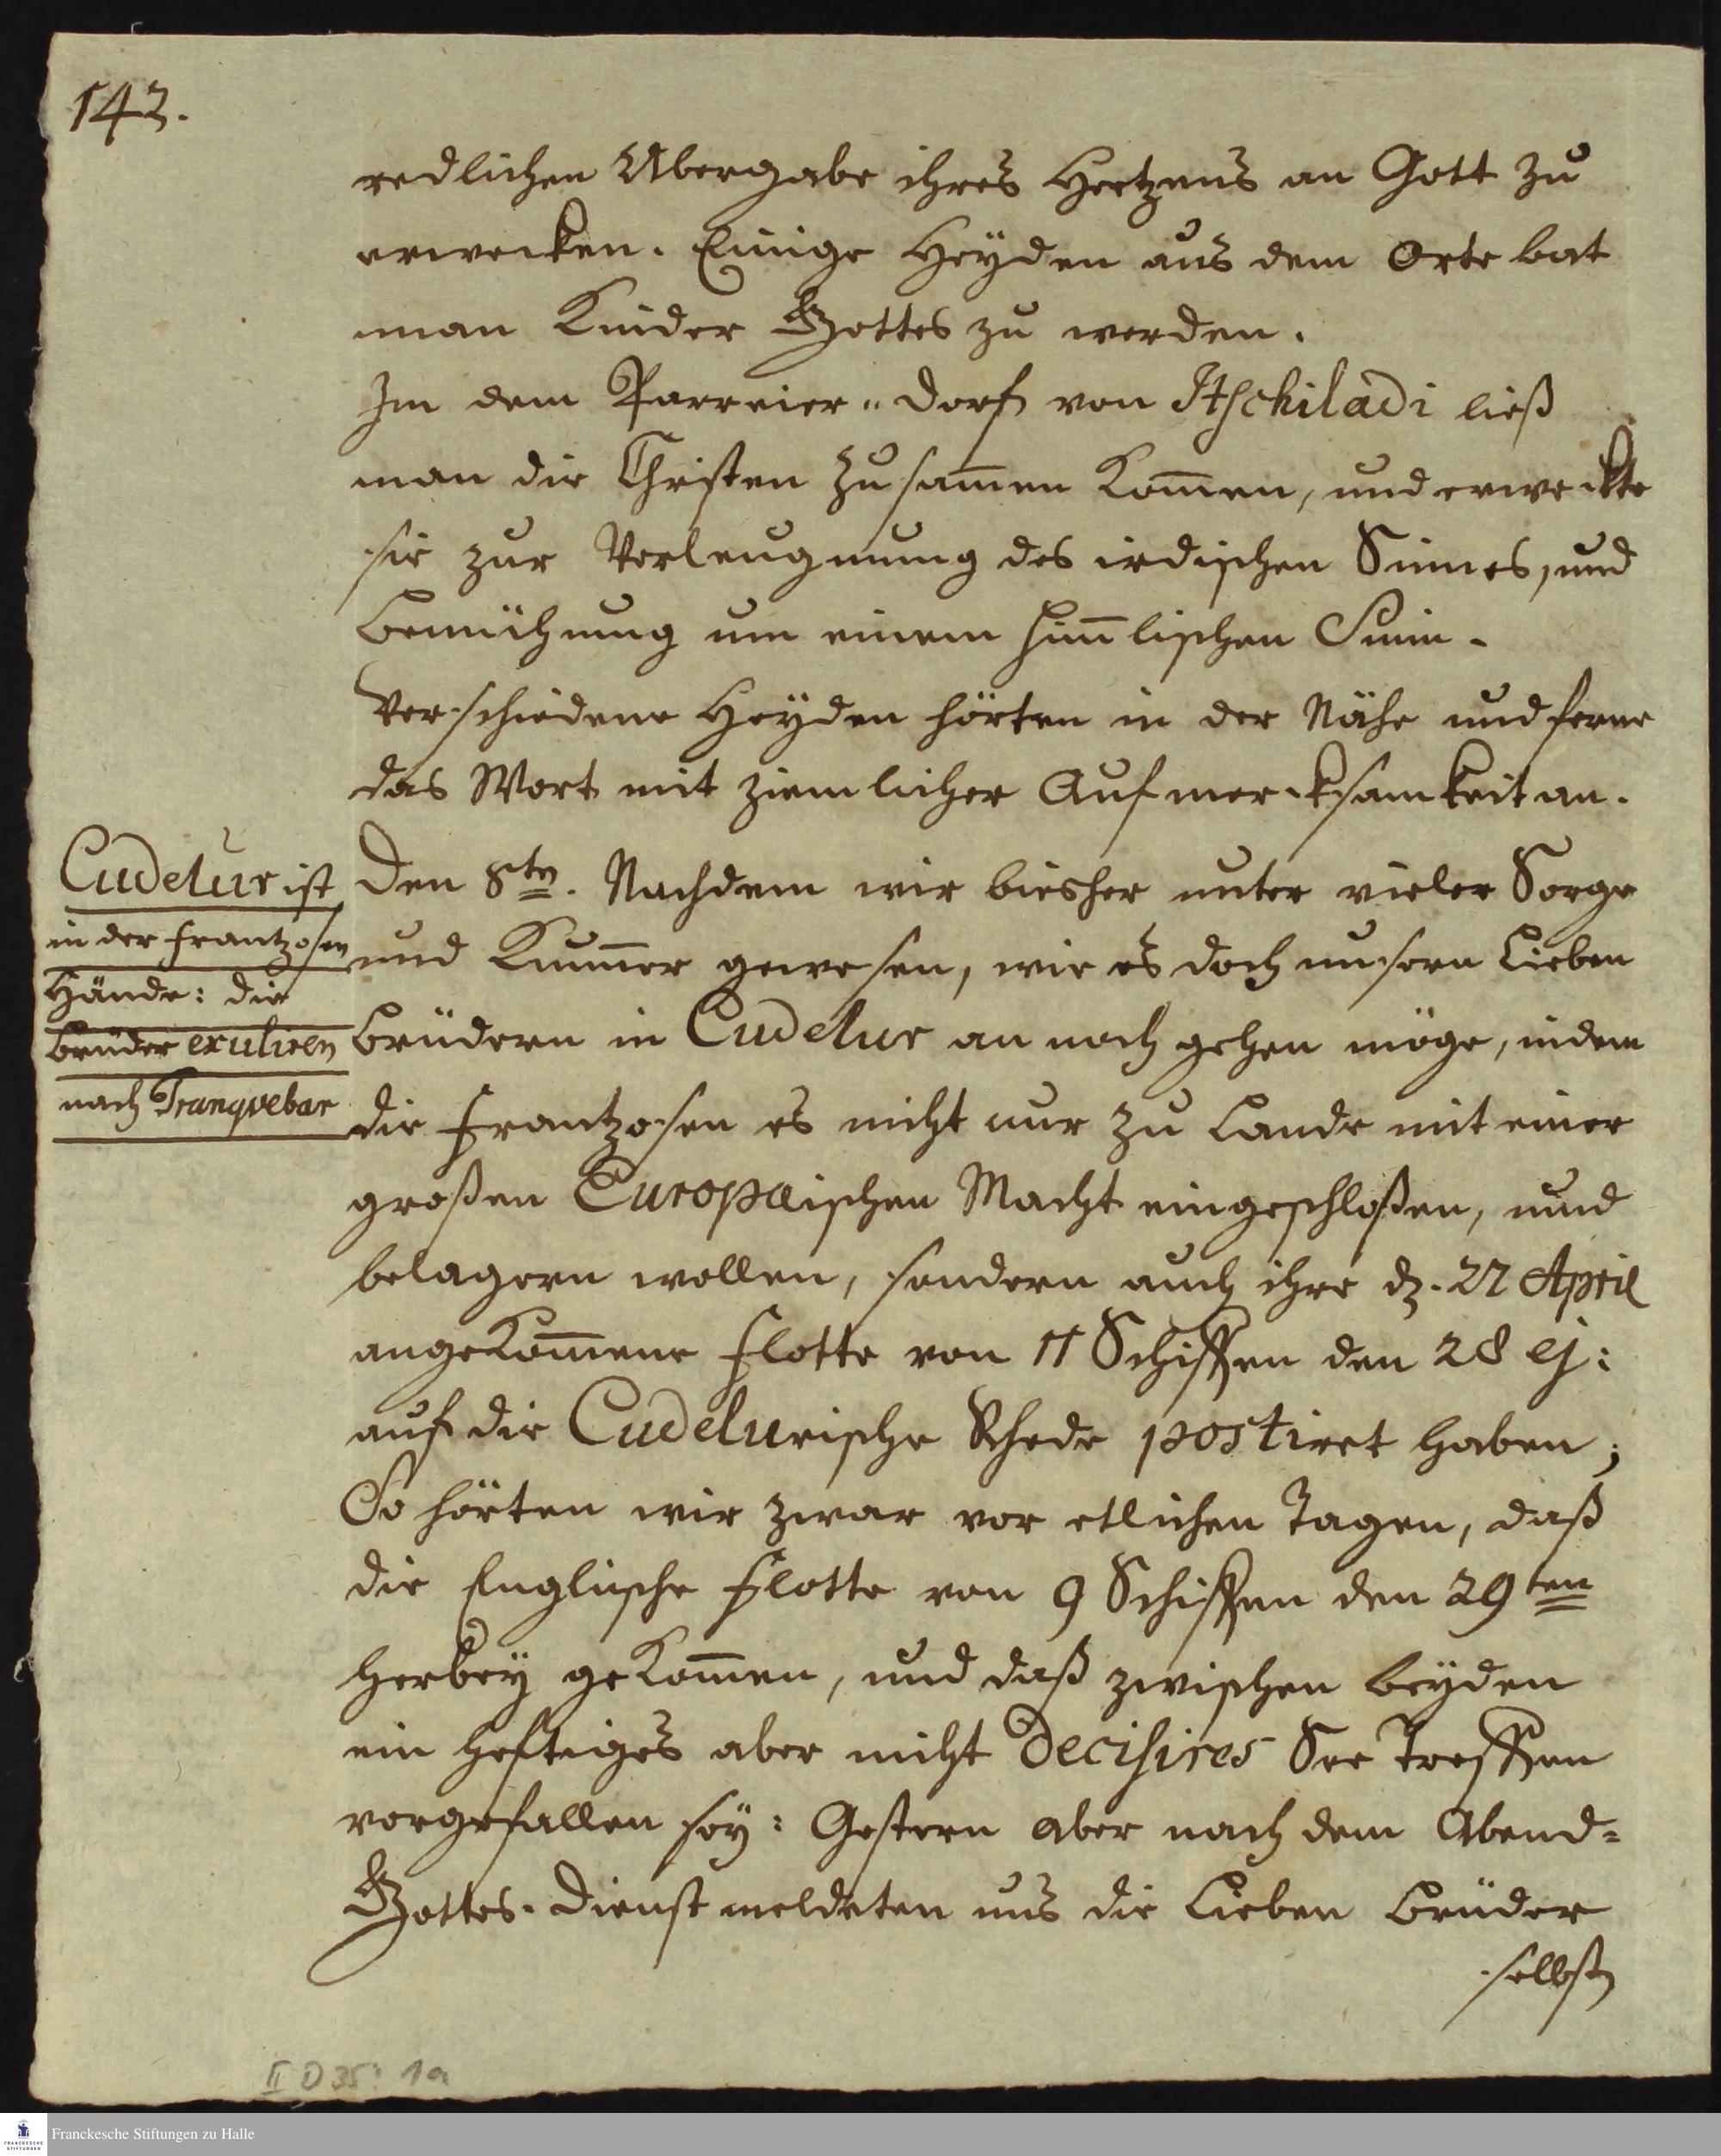 142.
redlichen Ubergabe ihres Hertzens an Gott zu
erwecken. Einige Heyden aus dem Orte bat
man Kinder Gottes zu werden.
Im dem Parreier-Dorf von Itschiladi ließ
man die Christen zusam̄en kom̄en, und erweckte
sie zur Verleugnung des irdischen Sinnes, und
Bemühung um einem him̄lischen Sinn.
Verschiedene Heyden hörten in der Nähe und ferne
das Wort mit ziemlicher Aufmercksamkeit an.
Cudelur ist
in der Frantzosen
Hände: die
Brüder exuliren
nach Tranqvebar
Den 8ten. Nachdem wir biesher unter vieler Sorge
und Kum̄er gewesen, wie es doch unsern Lieben
Brüdern in Cudelur an noch gehen möge, indem
die Frantzosen es nicht nur zu Lande mit einer
großen Europæischen Macht eingeschloßen, und
belagern wollen, sondern auch ihre d. 27 April
angekom̄ene Flotte von 11 Schiffen den 28 ej:
auf die Cudelurische Rhede postiret haben;
So hörten wir zwar vor etlichen Tagen, daß
die Englische Flotte von 9 Schiffen den 29ten
herbey gekom̄en, und daß zwischen beyden
ein heftiges aber nicht decisives See Treffen
vorgefallen sey: Gestern aber nach dem Abend-
Gottes-Dienst meldeten uns die Lieben Brüder
selbst
II D 35: 1a
Franckesche Stiftungen zu Halle